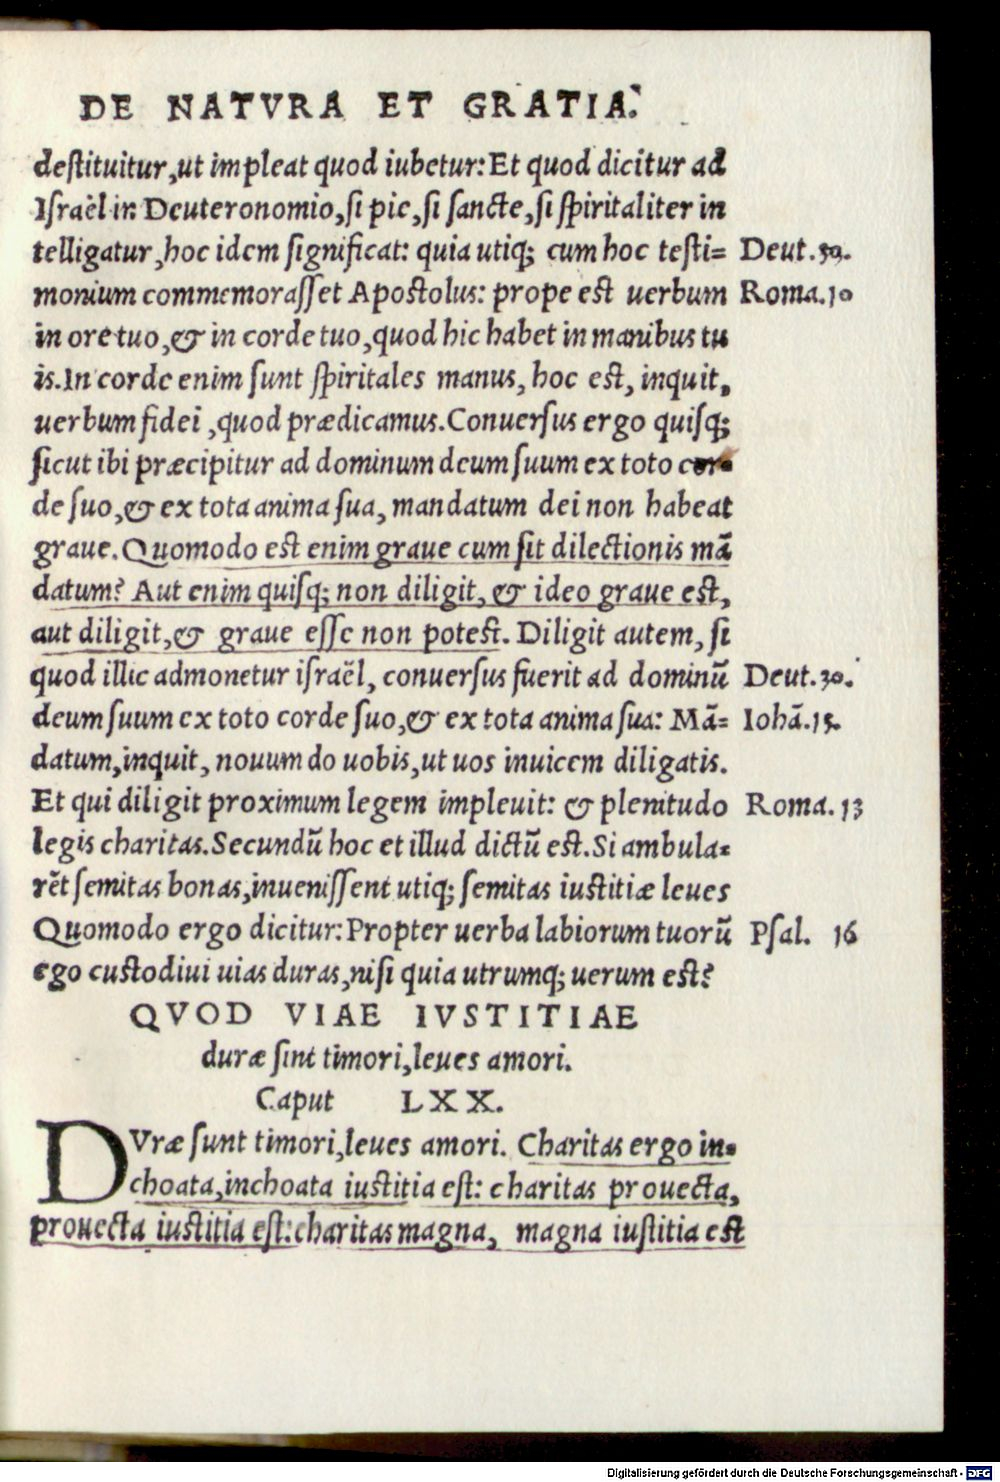 DE NATVRA ET GRATIA.
destituitur, ut impleat quod iubetur: Et quod dicitur ad
Israël in Deuteronomio, si pie, si sancte, si spiritaliter in
telligatur, hoc idem significat: quia utiq; cum hoc testi= Deut. 30.
monium commemorasset Apostolus: prope est uerbum Roma. 10
in ore tuo, & in corde tuo, quod hic habet in manibus tu
is. In corde enim sunt spiritales manus, hoc est, inquit,
uerbum fidei, quod prædicamus. Conuersus ergo quisq;
sicut ibi præcipitur ad dominum deum suum ex toto cor=
de suo, & ex tota anima sua, mandatum dei non habeat
graue. Quomodo est enim graue cum sit dilectionis mā
datum? Aut enim quisq; non diligit, & ideo graue est,
aut diligit, & graue esse non potest. Diligit autem, si
quod illic admonetur israël, conuersus fuerit ad dominū Deut. 30.
deum suum ex toto corde suo, & ex tota anima sua: Mā= Iohā. 15.
datum, inquit, nouum do uobis, ut uos inuicem diligatis.
Et qui diligit proximum legem impleuit: & plenitudo Roma. 13
legis charitas. Secundū hoc et illud dictū est. Si ambula=
rēt semitas bonas, inuenissent utiq; semitas iustitiæ leues
Quomodo ergo dicitur: Propter uerba labiorum tuorū Psal. 16
ego custodiui uias duras, nisi quia utrumq; uerum est?
QVOD VIAE IVSTITIAE
duræ sint timori, leues amori.
Caput LXX.
DVræ sunt timori, leues amori. Charitas ergo in=
choata, inchoata iustitia est: charitas prouecta,
prouecta iustitia est: charitas magna, magna iustitia est
Digitalisierung gefördert durch die Deutsche Forschungsgemeinschaft - DFG